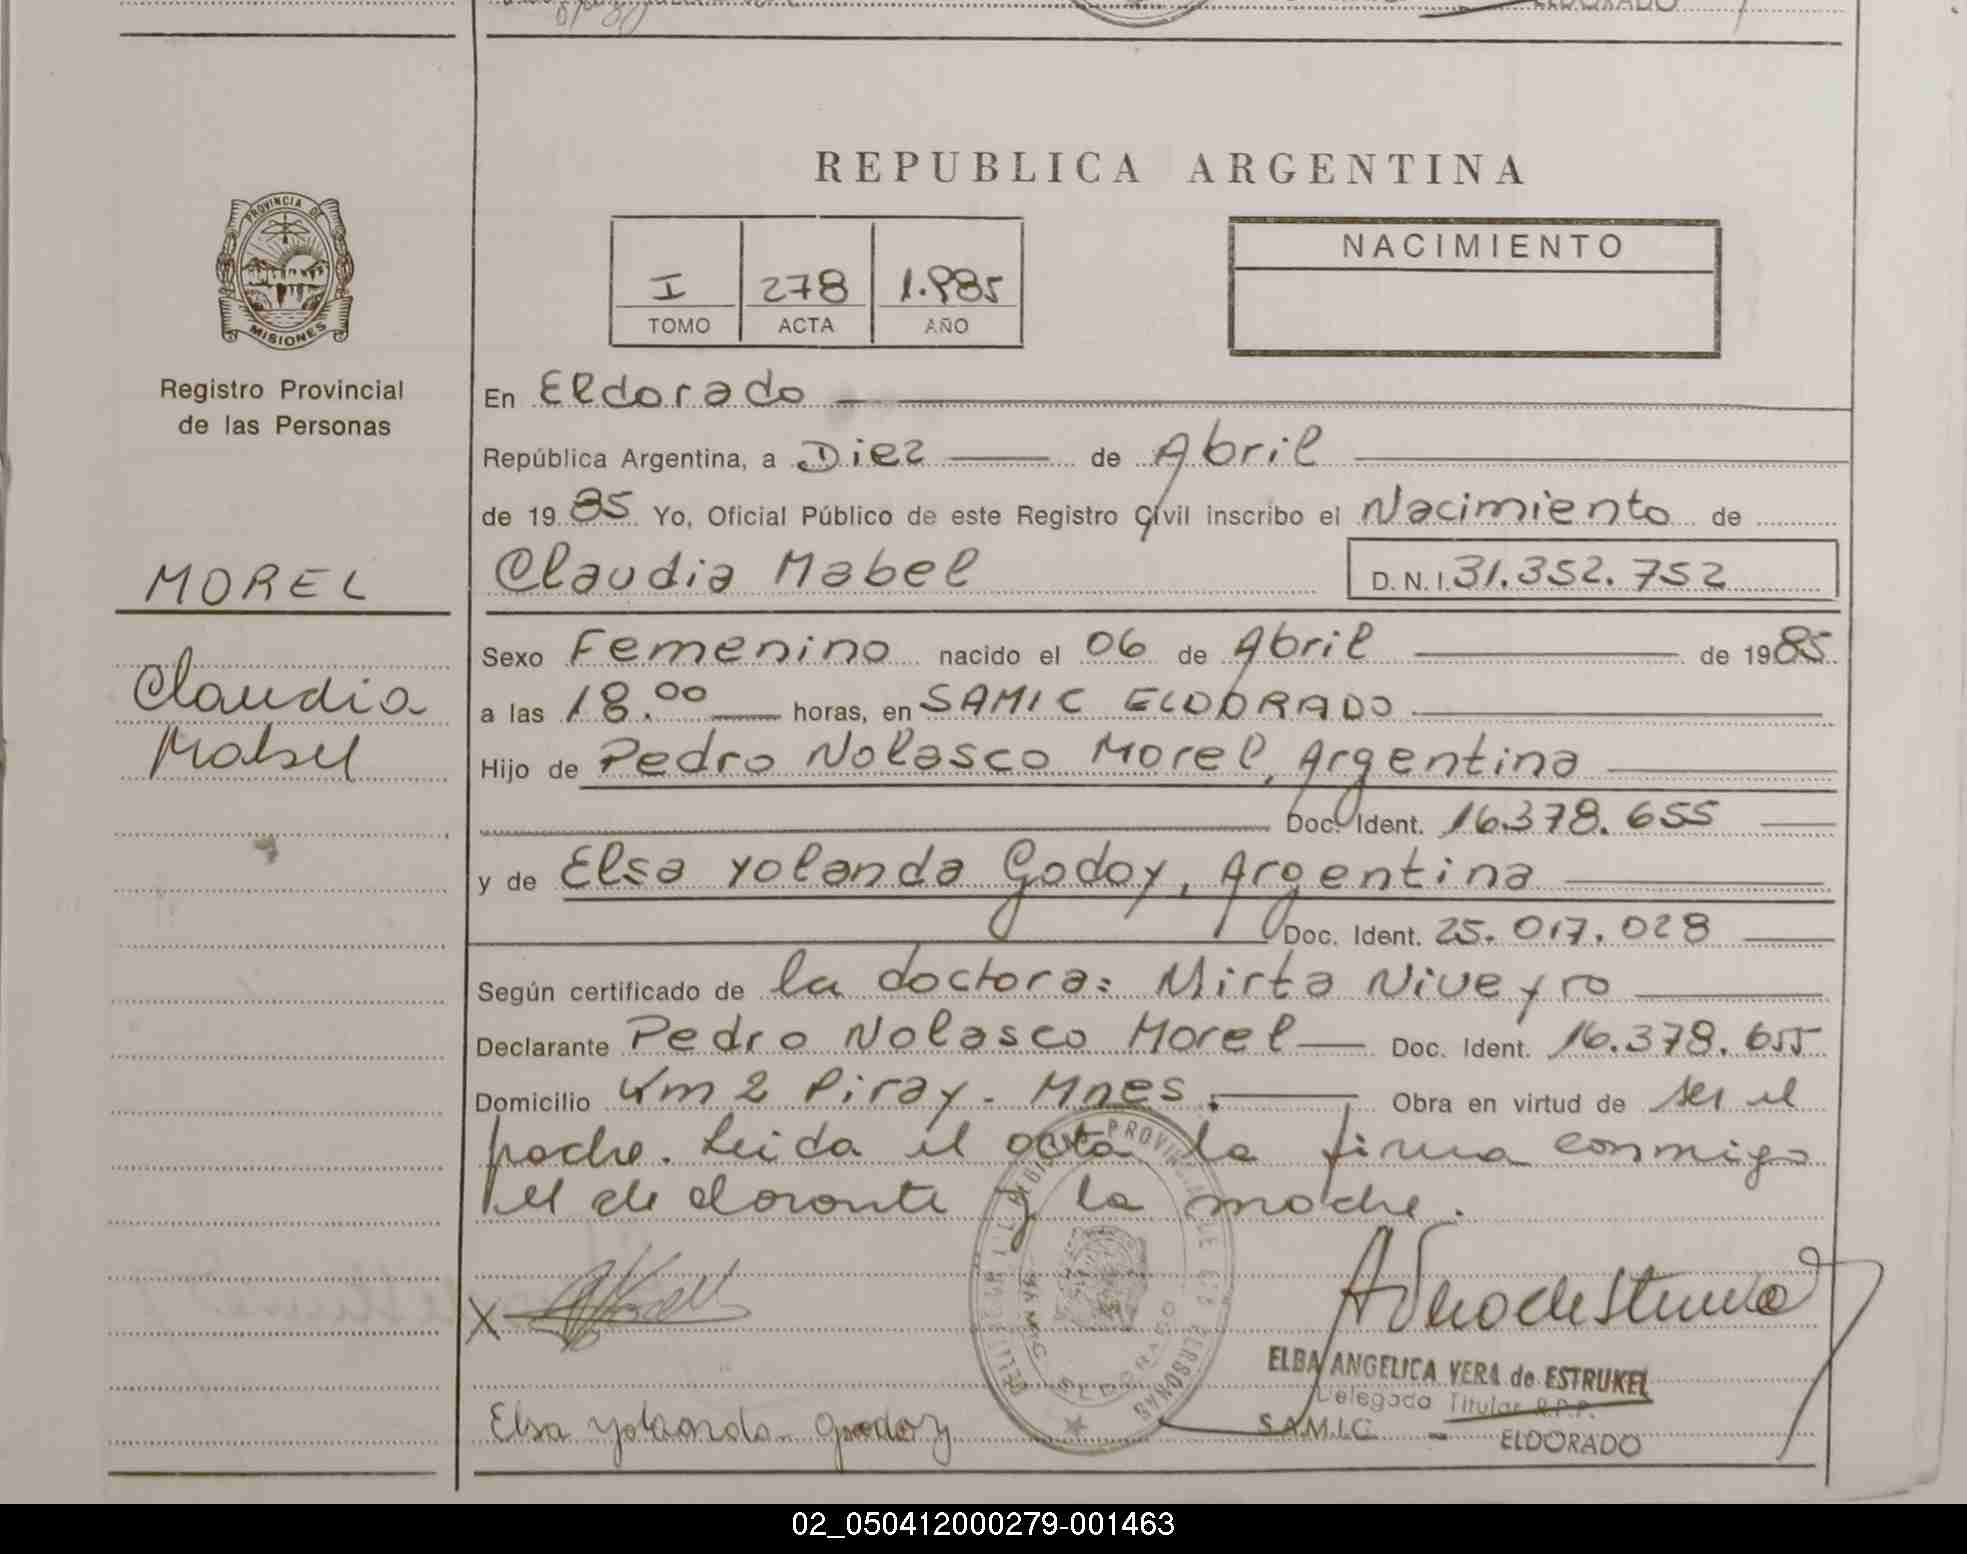 ELDORADO
REPUBLICA ARGENTINA
PROVINCIA DE
MISIONES
Registro Provincial
de las Personas
I 278 1.985
TOMO ACTA AÑO
NACIMIENTO
En Eldorado
República Argentina, a Diez de Abril
de 1985 Yo, Oficial Público de este Registro Civil inscribo el Nacimiento de
MOREL
Claudia Mabel D.N.I. 31.352.752
Claudia
Mabel
Sexo Femenino nacido el 06 de Abril de 1985
a las 18.00 horas, en SAMIC ELDORADO
Hijo de Pedro Nolasco Morel, Argentina
Doc. Ident. 16.378.655
y de Elsa Yolanda Godoy, Argentina
Doc. Ident. 25.017.028
Según certificado de la doctora: Mirta Niveyro
Declarante Pedro Nolasco Morel Doc. Ident. 16.378.655
Domicilio Km 2 Piray - Mnes. Obra en virtud de ser el
padre. Leida el acta la firma conmigo
el declarante y la madre.
X
ELBA ANGELICA VERA de ESTRUKEL
Delegado Titular R.P.P.
S.A.M.I.C. - ELDORADO
Elsa Yolanda Godoy
02_050412000279-001463